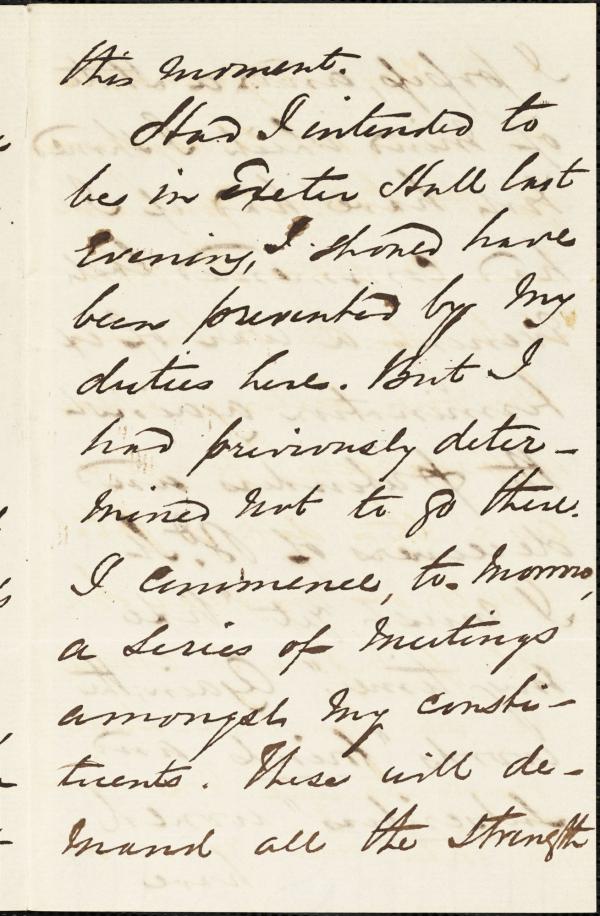 this moment.
Had I intended to
be in Exeter Hall last
Evening, I should have
been prevented by my
duties here. But I
had previously deter-
mined not to go there.
I commence, to-morrow,
a series of Meetings
amongst my consti-
tuents. These will de-
mand all the strength